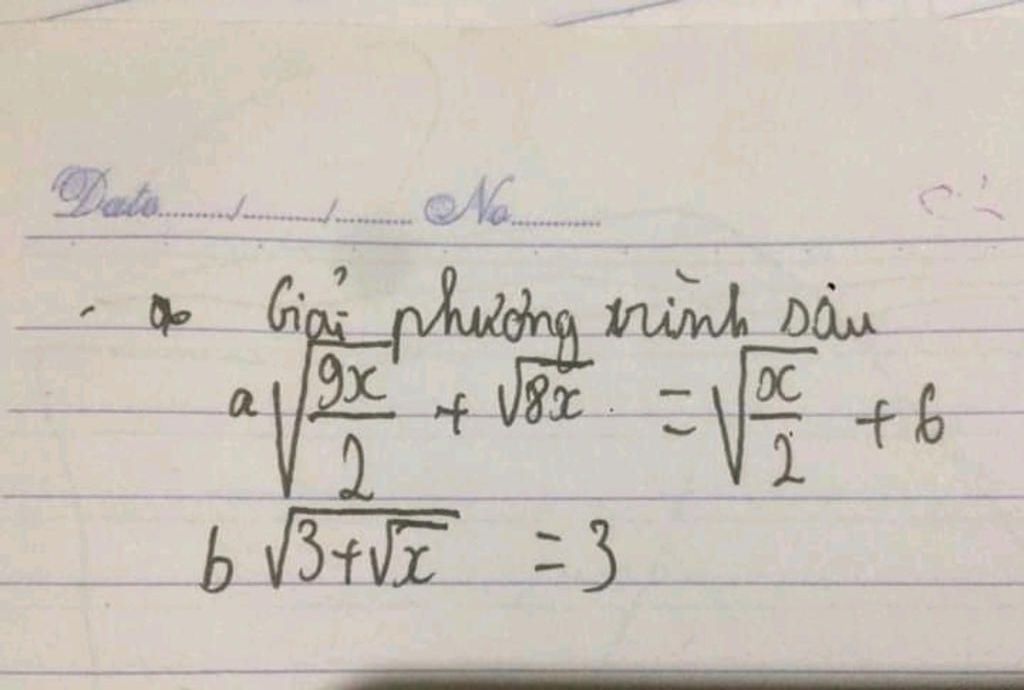 Date......../........./......... No...........
Giải phương trình sau
a √(9x/2) + √(8x) = √(x/2) + 6
b √(3+√x) = 3